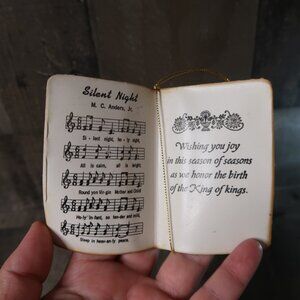 Silent Night
M. C. Anders, Jr.
Si - lent night, ho - ly night,
All is calm, all is bright
Round yon Vir-gin Mother and Child
Ho-ly in-fant, so ten-der and mild,
Sleep in heav-en-ly peace,
Wishing you joy
in this season of seasons
as we honor the birth
of the King of kings.